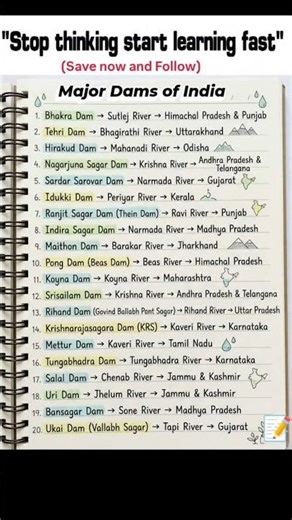 "Stop thinking start learning fast"
(Save now and Follow)
Major Dams of India
1. Bhakra Dam → Sutlej River → Himachal Pradesh & Punjab
2. Tehri Dam → Bhagirathi River → Uttarakhand
3. Hirakud Dam → Mahanadi River → Odisha
4. Nagarjuna Sagar Dam → Krishna River → Andhra Pradesh & Telangana
5. Sardar Sarovar Dam → Narmada River → Gujarat
6. Idukki Dam → Periyar River → Kerala
7. Ranjit Sagar Dam (Thein Dam) → Ravi River → Punjab
8. Indira Sagar Dam → Narmada River → Madhya Pradesh
9. Maithon Dam → Barakar River → Jharkhand
10. Pong Dam (Beas Dam) → Beas River → Himachal Pradesh
11. Koyna Dam → Koyna River → Maharashtra
12. Srisailam Dam → Krishna River → Andhra Pradesh & Telangana
13. Rihand Dam (Govind Ballabh Pant Sagar) → Rihand River → Uttar Pradesh
14. Krishnarajasagara Dam (KRS) → Kaveri River → Karnataka
15. Mettur Dam → Kaveri River → Tamil Nadu
16. Tungabhadra Dam → Tungabhadra River → Karnataka
17. Salal Dam → Chenab River → Jammu & Kashmir
18. Uri Dam → Jhelum River → Jammu & Kashmir
19. Bansagar Dam → Sone River → Madhya Pradesh
20. Ukai Dam (Vallabh Sagar) → Tapi River → Gujarat